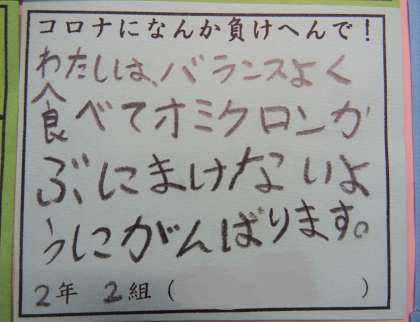 コロナになんか負けへんで！
わたしは、バランスよく
食べてオミクロンか
ぶにまけないよ
うにがんばります。
2年 2組（ ）